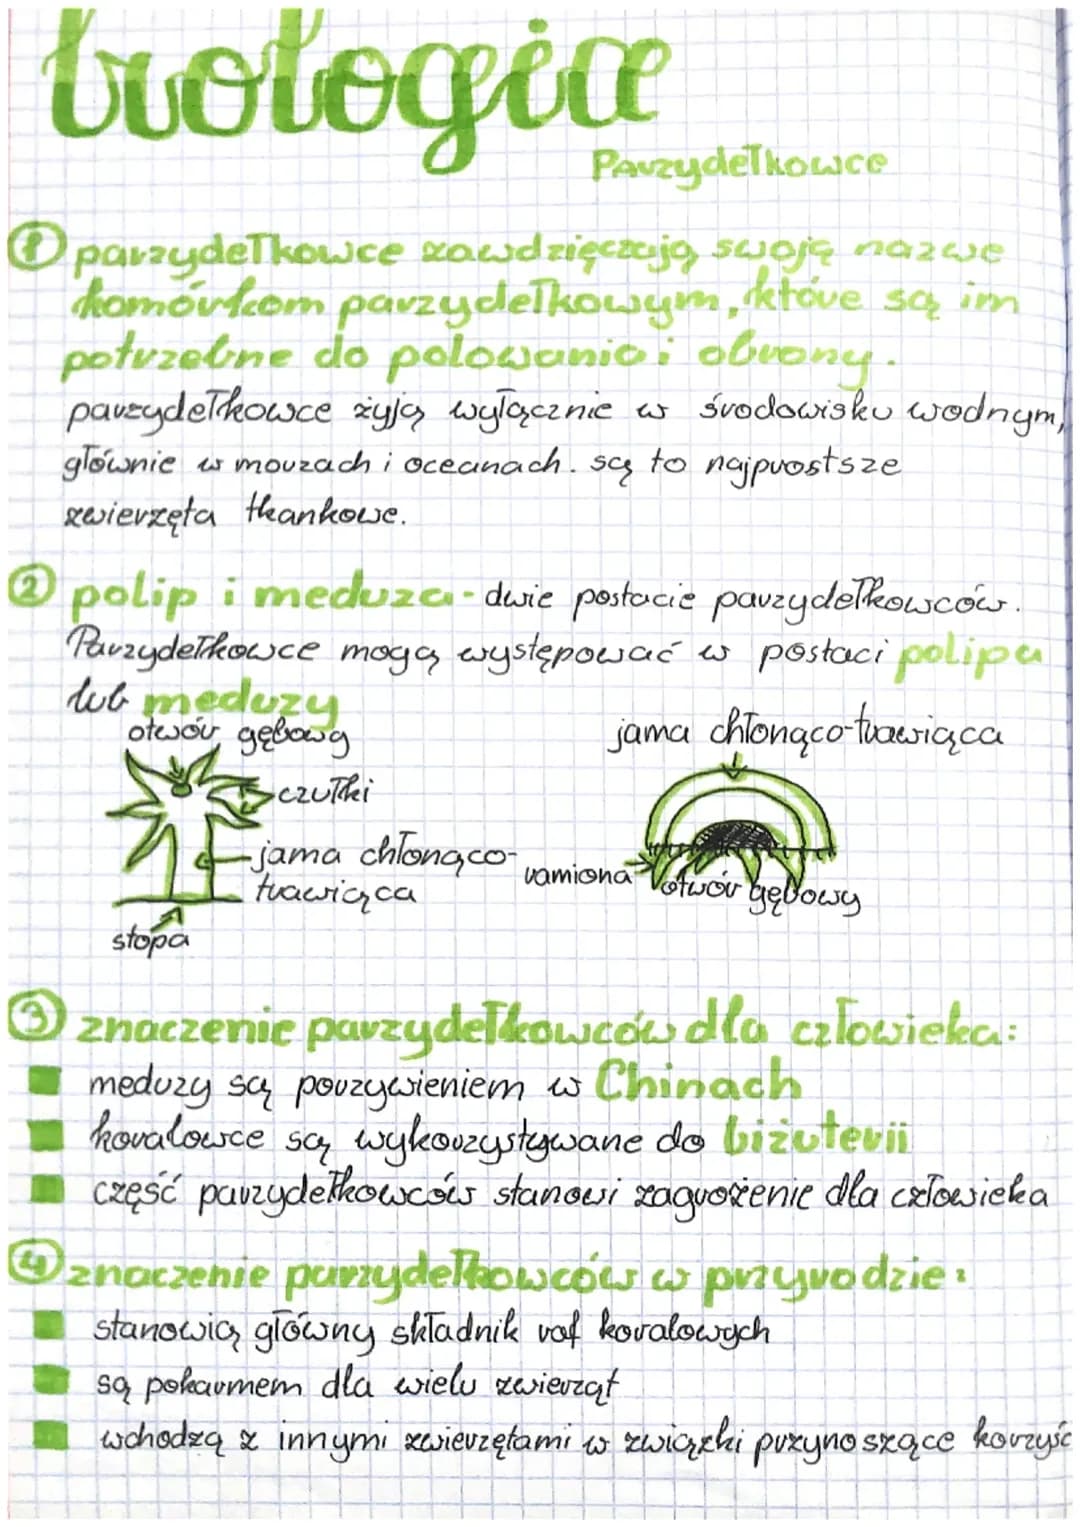 biologia
Parzydełkowce
① parzydełkowce zawdzięczają swoją nazwe
komórkom parzydełkowym, które są im
potrzebne do polowania i obrony.
parzydełkowce żyją wyłącznie w środowisku wodnym,
głównie w morzach i oceanach. są to najprostsze
zwierzęta tkankowe.
② polip i meduza - dwie postacie parzydełkowców.
Parzydełkowce mogą występować w postaci polipa
lub meduzy
otwór gębowy
czułki
jama chłonąco-
trawiąca
stopa
jama chłonąco-trawiąca
ramiona
otwór gębowy
③ znaczenie parzydełkowców dla człowieka:
meduzy są pożywieniem w Chinach
koralowce są wykorzystywane do biżuterii
część parzydełkowców stanowi zagrożenie dla człowieka
④ znaczenie parzydełkowców w przyrodzie:
stanowią główny składnik raf koralowych
są pokarmem dla wielu zwierząt
wchodzą z innymi zwierzętami w związki przynoszące korzyśc